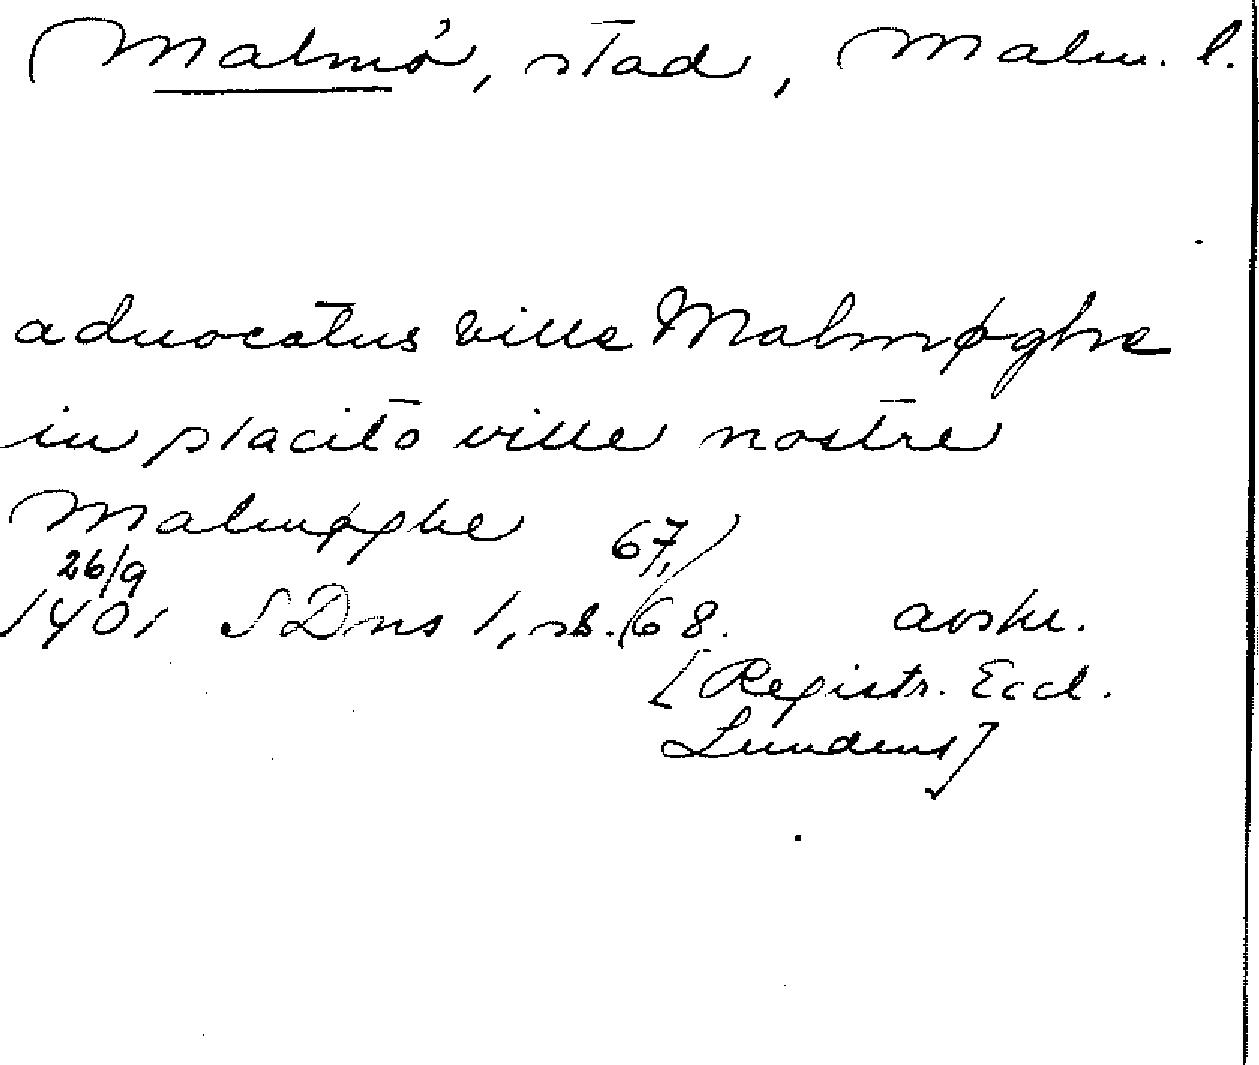 Malmö, stad, Malm. l.
aduocatus ville Malmøghe
in placito ville nostre
Malmøghe 67,
26/9
1401 SDns 1, sb. 68. avskr.
[Registr. Eccl.
Lundens]